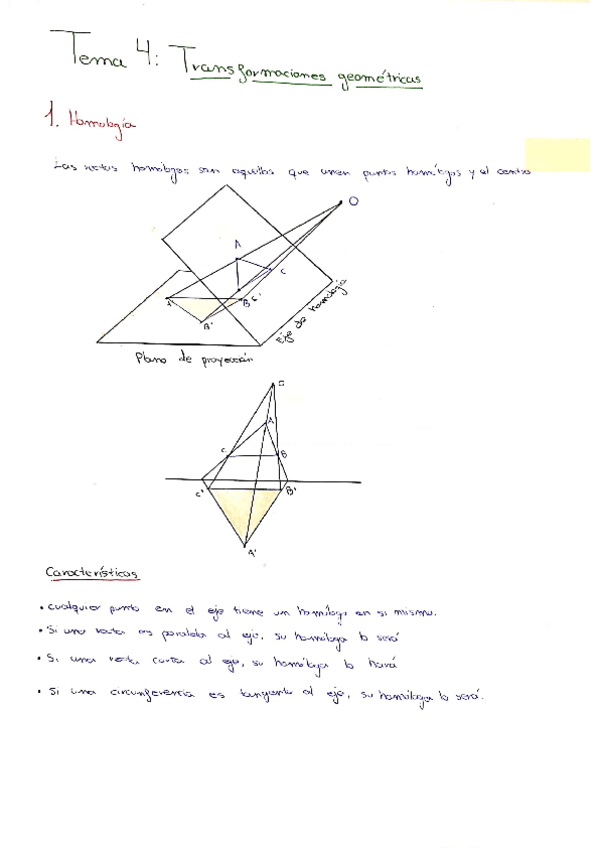 Tema 4: Transformaciones geométricas
1. Homología
Las rectas homólogas son aquellas que unen puntos homólogos y el centro
O
A
C
A'
B C'
B'
Eje de homología
Plano de proyección
A
C
B
C'
B'
A'
Características
• Cualquier punto en el eje tiene un homólogo en si mismo.
• Si una recta es paralela al eje, su homóloga lo será
• Si una recta corta al eje, su homóloga lo hará
• Si una circunferencia es tangente al eje, su homóloga lo será.